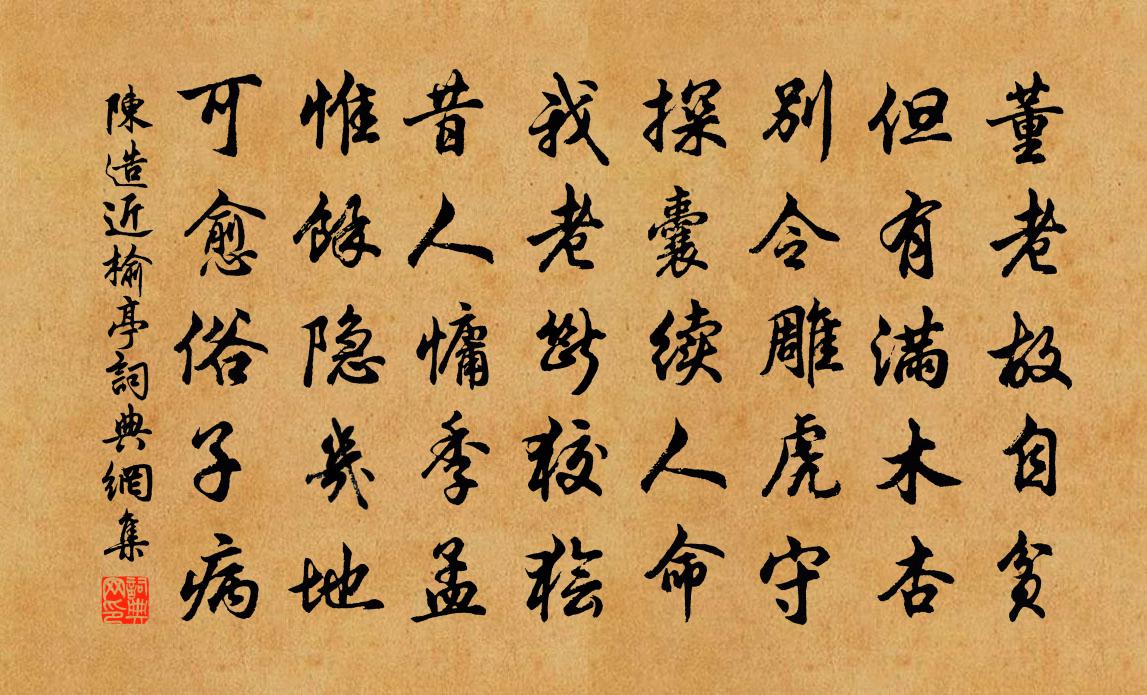 董老故自贫
但有满木杏
别令雕虎守
探囊续人命
我老斷狡獪
昔人慵季孟
惟餘隐幾地
可愈俗子病
陳造近榆亭詞典網集
詞典网印